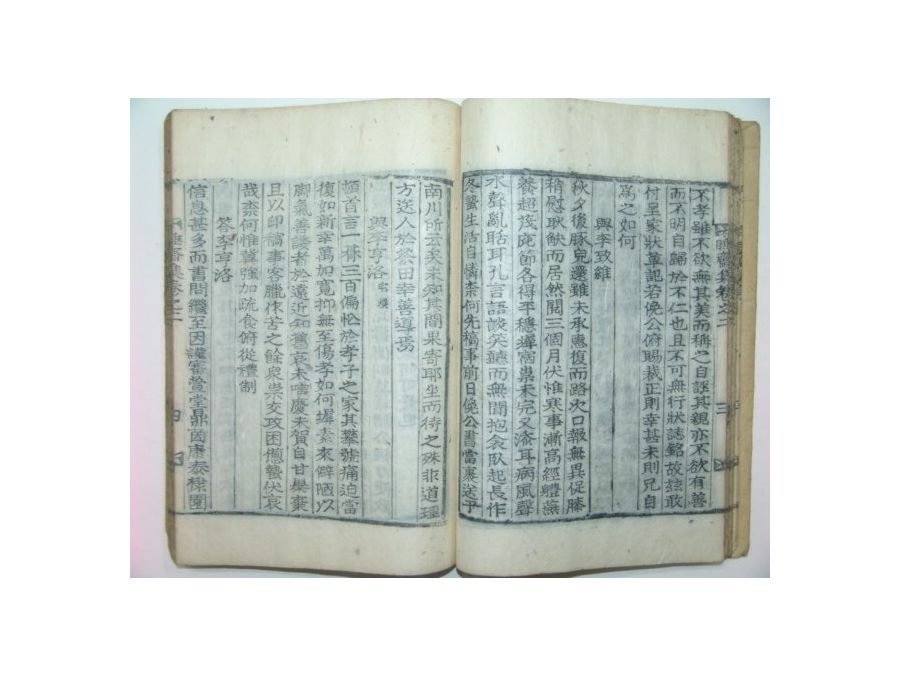 不孝雖不欲無其美而稱之自誣其親亦不欲有善
而不明自歸於不仁也且不可無行狀誌銘故玆敢
付呈家狀草記若俛公俯賜裁正則幸甚未則兄自
爲之如何
與李致維
秋夕後豚兒還雖未承惠復而路次口報無異促膝
稍慰耿缺而居然閱三個月伏惟寒事漸高經體燕
養超
節各得平穩墀宿祟未完又添耳病風聲
水聲亂聒耳孔言語談笑聽而無聞抱衾臥起長作
冬蟄生活自憐柰何先稿事前日俛公書當裹送于
南川所云矣未知其間果寄耶坐而待之殊非道理
方送人於
田幸善導焉
與李亨洛 宅櫻
頓首言一
三百偏
於孝子之家其攀號痛迫當
復如新幸萬加寬抑無至傷孝如何墀素來僻陋以
脚氣善
者於遠近知舊哀未唁慶未賀自甘
棄
且以印稿事客臘
苦之餘痰祟交攻困憊蟄伏哀
哉柰何惟冀強加疏食俯從禮制
答李亨洛
信息甚多而書問繼至因謹審萱堂鼎茵康泰棣園
集卷之二
三
四